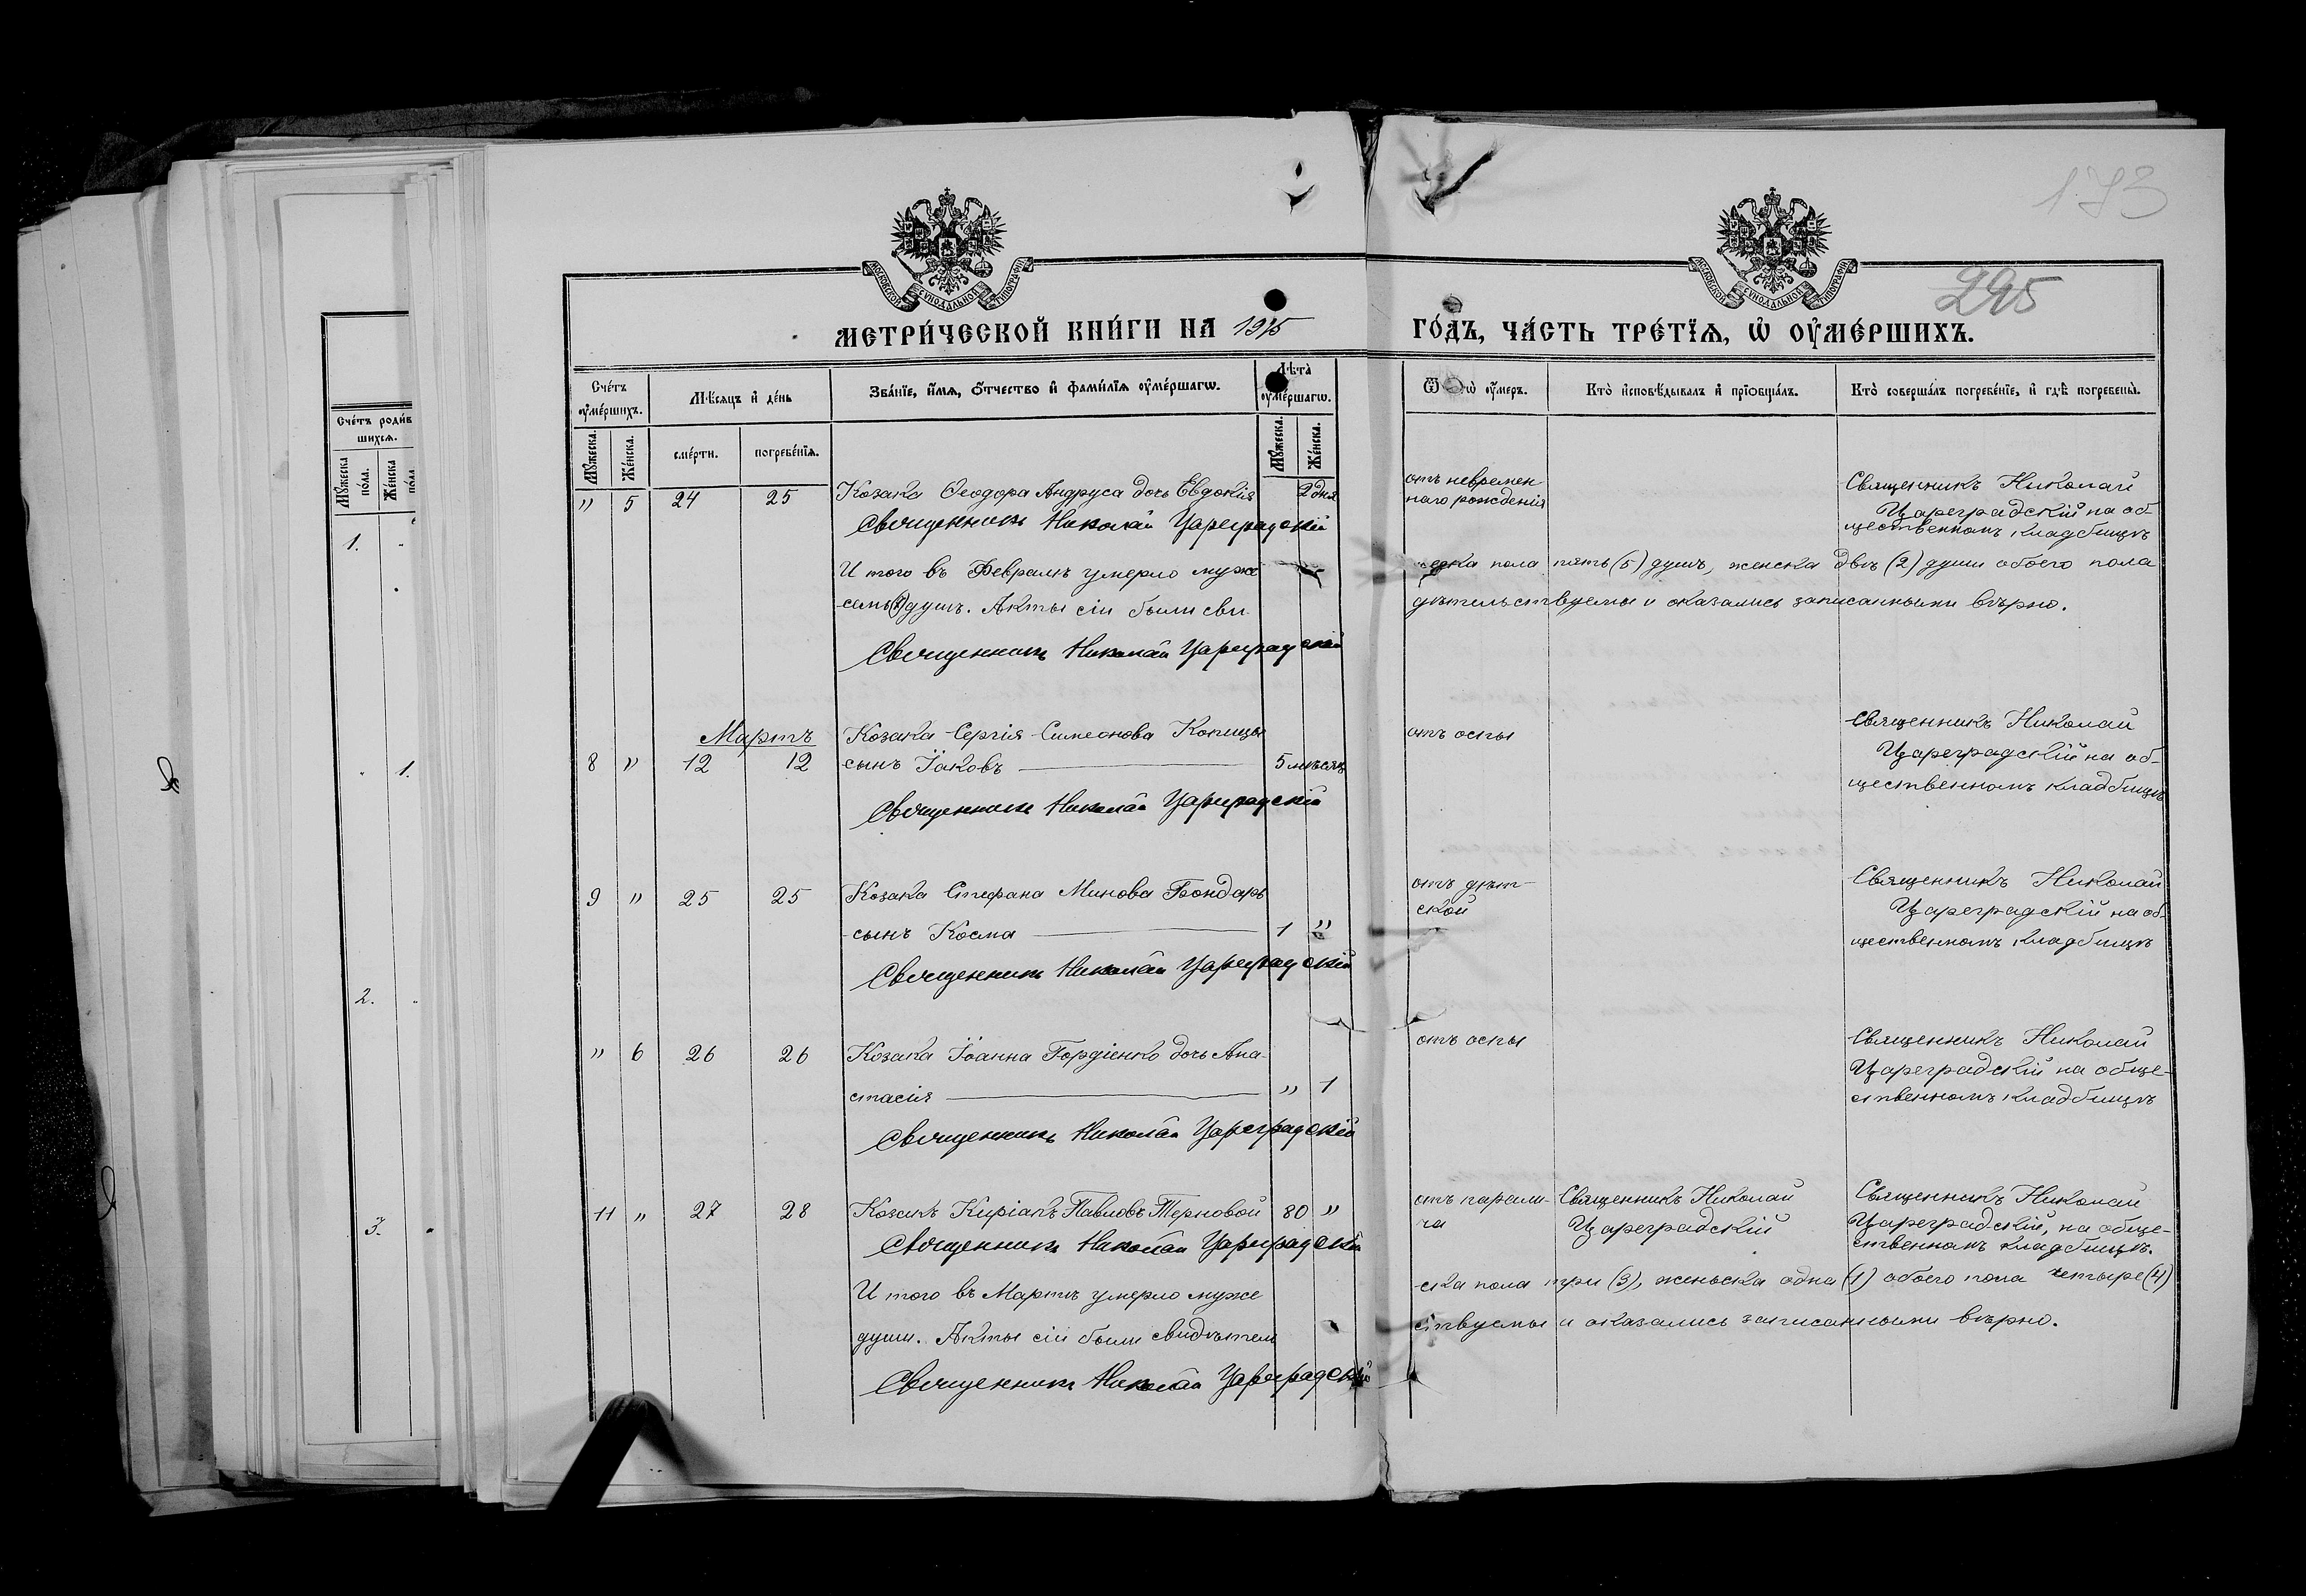 173
295
МОСКОВСКОЙ СѴНОДАЛЬНОЙ ТИПОГРАФІИ
МОСКОВСКОЙ СѴНОДАЛЬНОЙ ТИПОГРАФІИ
МЕТРИ́ЧЕСКОЙ КНИ́ГИ НА 1915 ГО́ДЪ, ЧА́СТЬ ТРЕ́ТЇѦ, Ѡ҆ ОУ҆МЕ́РШИХЪ.
Сче́тъ роди́в
шихсѧ.
Мꙋ́жеска
по́ла.
Же́нска
пола
1.
1.
2.
3.
Сче́тъ
оу҆ме́ршихъ.
Мꙋ́жеска.
Же́нска.
Мѣ́сѧцъ и҆ де́нь
сме́рти.
погребе́нїѧ.
Зва́нїе, и҆́мѧ, ѻ҆́тчество и҆ фами́лїѧ оу҆ме́ршагѡ.
Лѣта̀
оу҆ме́ршагѡ.
Мꙋ́жеска.
Же́нска.
оу҆́меръ.
Кто̀ и҆сповѣ́дывалъ и҆ прїѡбща́лъ.
Кто̀ соверша́лъ погребе́нїе, и҆ гдѣ̀ погребены̀.
" 5 24 25 Козака Ѳеодора Андруса дочь Евдокія 2 дня
отъ невремен
наго рожденія
Священникъ Николай
Цареградскій на об-
щественномъ кладбищѣ
Священникъ Николай Цареградскій
И того въ Февралѣ умерло муже ска пола пять (5) душъ, женска двѣ (2) души обоего пола
семь (7) душъ. Акты сіи были сви дѣтельствуемы и оказались записанными вѣрно.
Священникъ Николай Цареградскій
Мартъ
8 " 12 12 Козака Сергія Симеонова Копицы
сынъ Іаковъ 5 мѣсяц
отъ оспы
Священникъ Николай
Цареградскій на об-
щественномъ кладбищѣ
Священникъ Николай Цареградскій
9 " 25 25 Козака Стефана Минова Бондарь
сынъ Косма 1 "
отъ дѣт-
ской
Священникъ Николай
Цареградскій на об-
щественномъ кладбищѣ
Священникъ Николай Цареградскій
" 6 26 26 Козака Іоанна Гордіенко дочь Ана-
стасія " 1
отъ оспы
Священникъ Николай
Цареградскій на обще-
ственномъ кладбищѣ
Священникъ Николай Цареградскій
11 " 27 28 Козакъ Киріакъ Павловъ Терновой 80 "
отъ парали-
ча
Священникъ Николай
Цареградскій
Священникъ Николай
Цареградскій, на обще-
ственномъ кладбищѣ.
Священникъ Николай Цареградскій
И того въ Мартѣ умерло муже ска пола три (3), женьска одна (1) обоего пола четыре (4)
души. Акты сіи были свидѣтель ствуемы и оказались записанными вѣрно.
Священникъ Николай Цареградскій